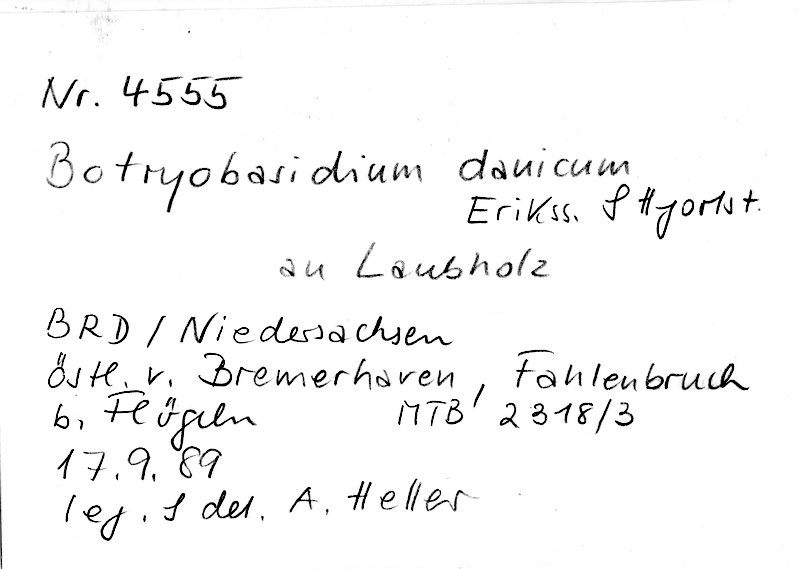 Nr. 4555
Botryobasidium danicum
Erikss. & Hjortst.
an Laubholz
BRD / Niedersachsen
östl. v. Bremerhaven, Fahlenbruch
b. Flögeln MTB 2318/3
17.9.89
leg. & det. A. Heller